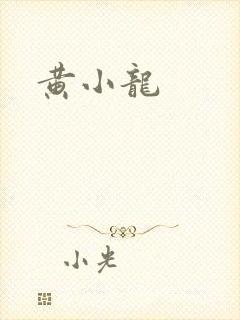 黄小龍
小光